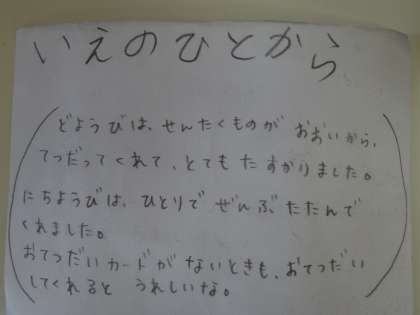 いえのひとから
どようびは、せんたくものが おおいから、
てつだってくれて、とてもたすかりました。
にちようびは、ひとりで ぜんぶたたんで
くれました。
おてつだいカードがないときも、おてつだい
してくれると うれしいな。